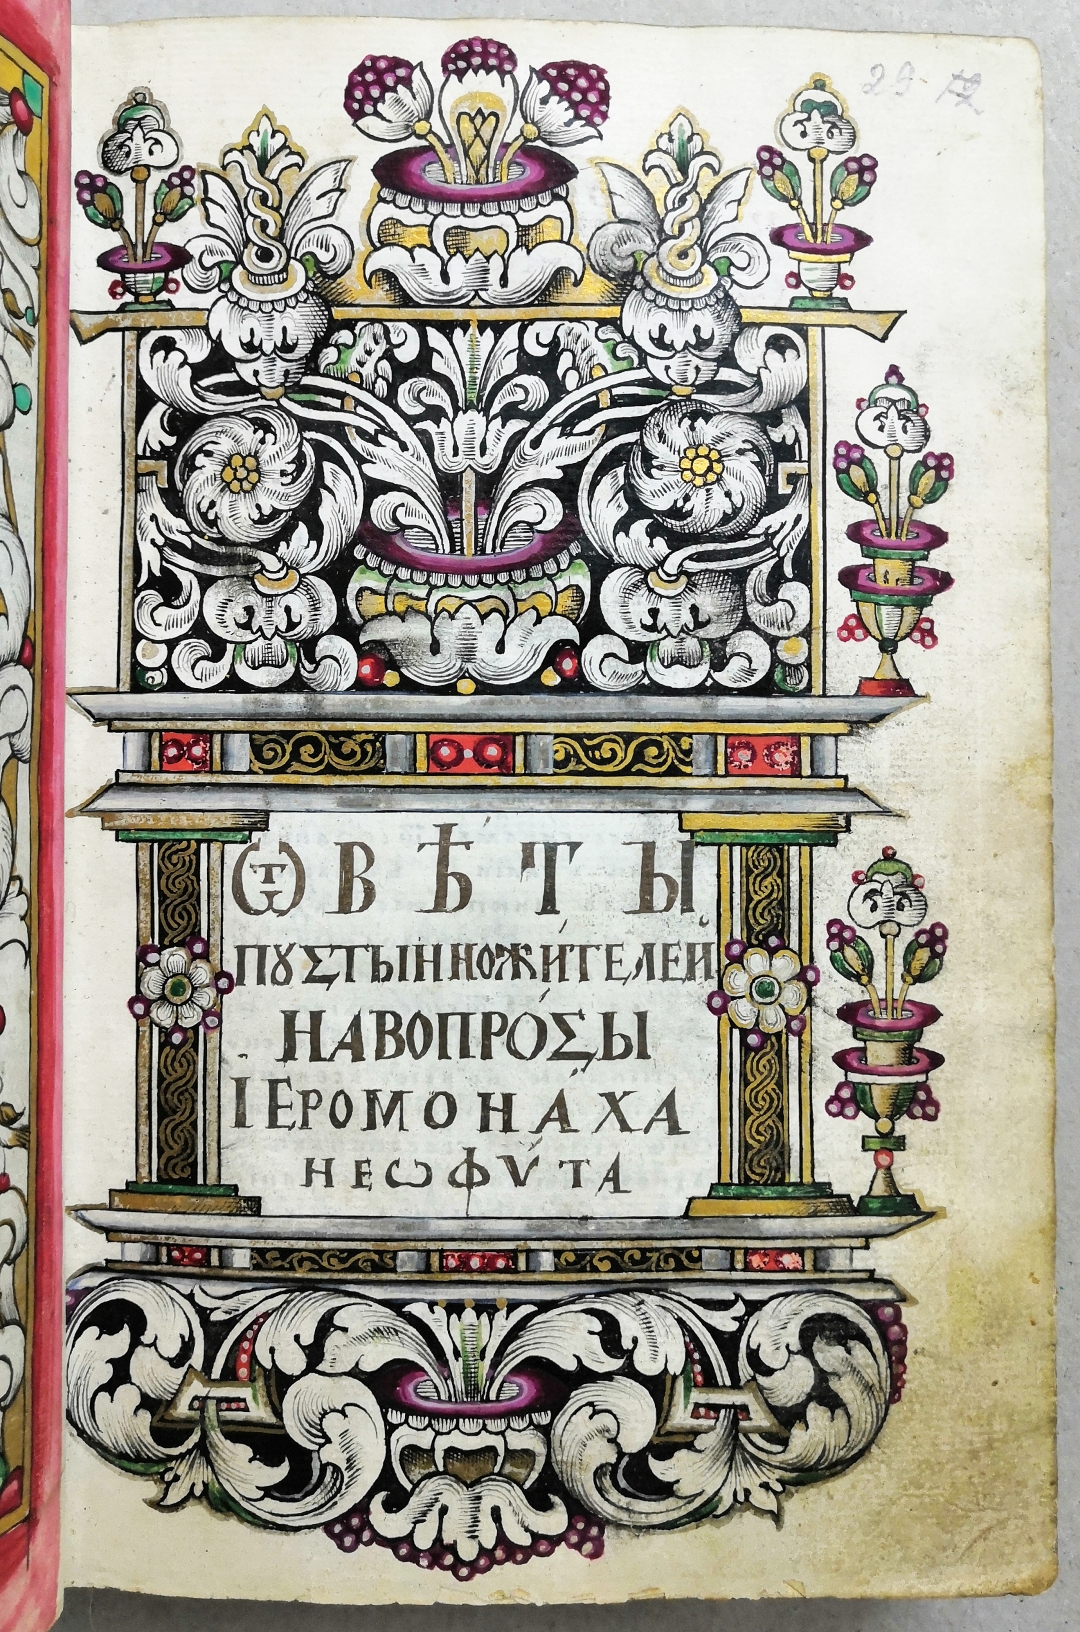 29 72
ѾВѢ́ТЫ
ПꙋСТЫННОЖИ́ТЕЛЕЙ
НАВОПРО́СЫ
ІЕРОМОНА́ХА
НЕѠФѴ́ТА